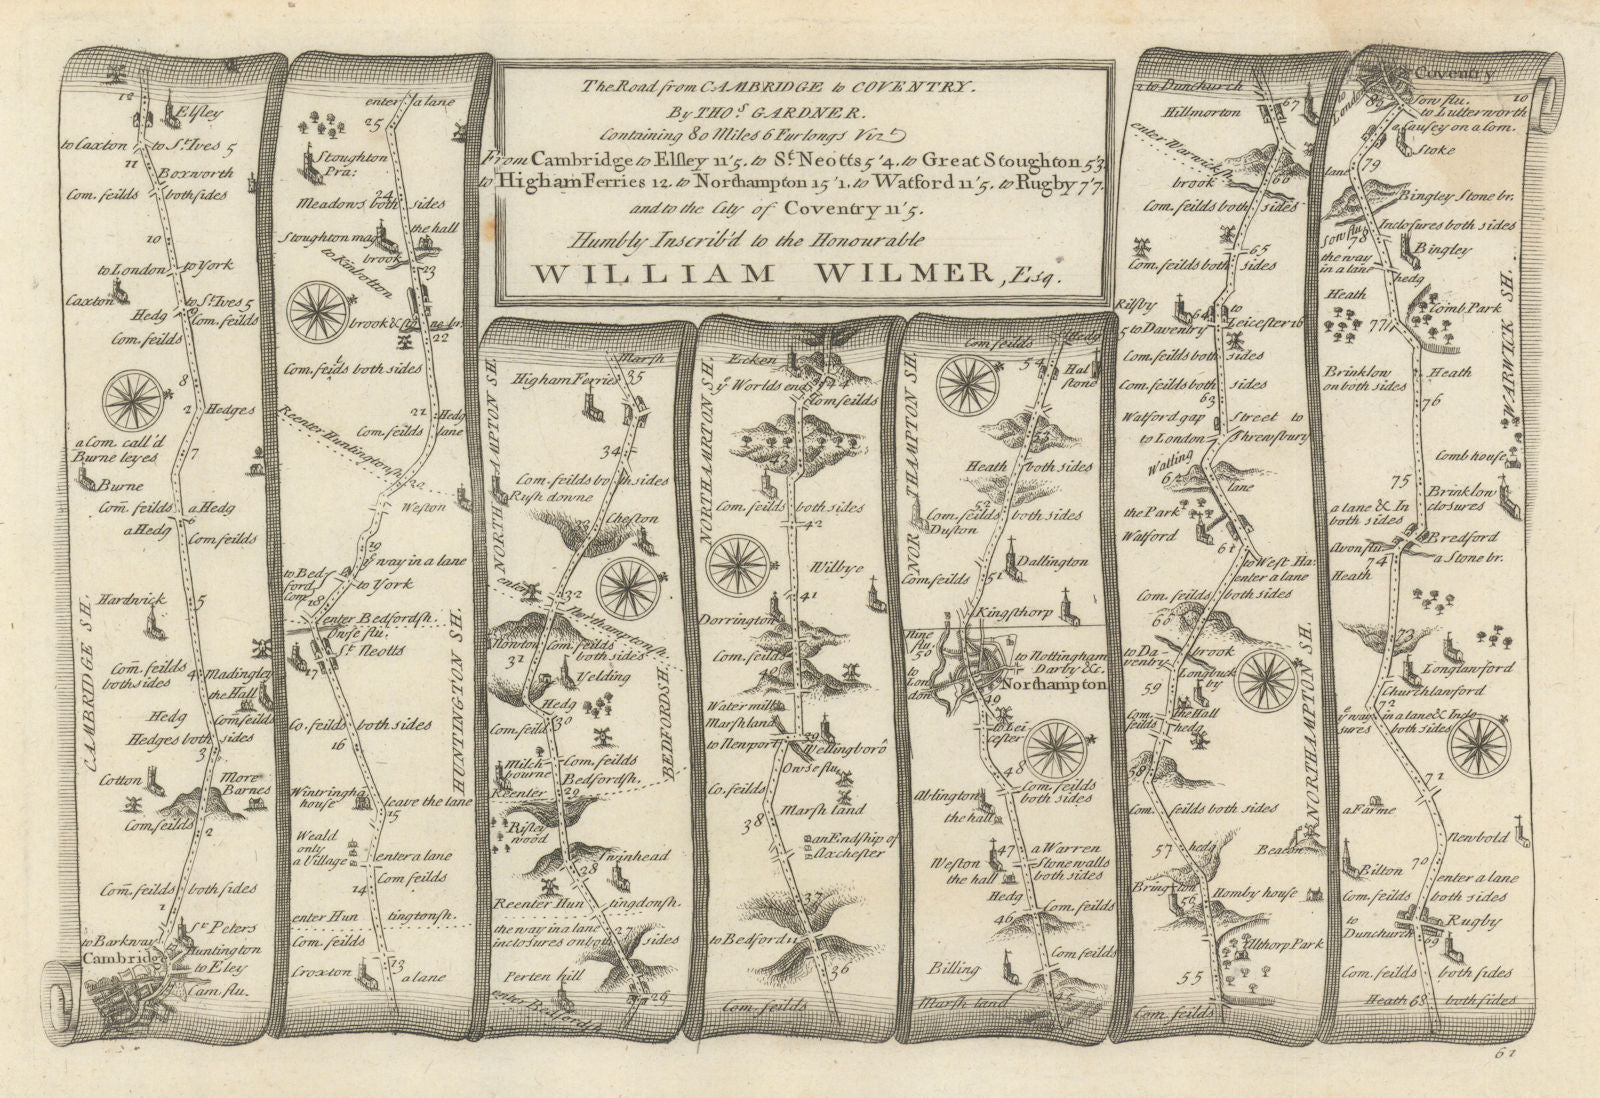 The Road from CAMBRIDGE to COVENTRY.
By THOS. GARDNER.
Containing 80 Miles 6 Furlongs Vizt
From Cambridge to Elsley 11'5. to St. Neotts 5'4. to Great Stoughton 5'3.
to Higham Ferries 12. to Northampton 15'1. to Watford 11'5. to Rugby 7'7.
and to the City of Coventry 11'5.
Humbly Inscrib'd to the Honourable
WILLIAM WILMER, Esq.
12
Elsley
to Caxton
to St. Ives 5
11
Boxworth
Com. feilds
both sides
10
to London
to York
Caxton
to St. Ives 5
Hedg
9
Com. feilds
Com. feilds
8
2
Hedges
a Com. call'd
Burne leyes
7
Burne
Com. feilds
a Hedg
6
a Hedg
Com. feilds
Hardwick
5
CAMBRIDGE SH.
Com. feilds
both sides
4
Madingley
the Hall
Hedg
Com feilds
Hedges both sides
3
Cotton
More
Barnes
Com. feilds
2
Com. feilds
both sides
1
St. Peters
to Barkway
Huntington
Cambridge
to Eley
Cam flu.
enter a lane
25
Stoughton
Pra:
24
Meadows both sides
Stoughton mag
the hall
brook
to Kinbotton
23
brook & stone br.
22
Com. feids both sides
21
Hedg
lane
Reenter Huntingtonsh.
Com. feilds
20
Weston
19
ye way in a lane
to Bed-
ford
Com
to York
18
enter Bedfordsh.
Owse flu.
St. Neotts
17
HUNTINGTON SH.
Co. feilds both sides
16
Wintringha
house
leave the lane
15
Weald
only
a Village
enter a lane
Com feilds
14
enter Hun
tingtonsh.
Com. feilds
Croxton
13
a lane
Marsh
35
Higham Ferries
NORTHAMPTON SH.
34
Com. feilds both sides
Rush downe
33
Cheston
enter Northamptons.
32
Nowton
Com. feilds
both sides
31
Yelding
Hedg
30
Com. feild
Milch-
bourne
Com. feilds
Bedfordsh.
BEDFORDSH.
Reenter
29
Risley
wood
Swinhead
28
Reenter Hun
tingdonsh.
the way in a lane
27
inclosures on both sides
Perten hill
26
enter Bedfordsh
NORTHAMPTON SH.
Ecken
ye Worlds end
44
Com feilds
43
Com. feilds
both sides
42
Wilbye
41
Dorrington
Com. feilds
40
Water mills
Marsh land
to Newport
39
Wellingboro
Owse flu.
Co. feilds
Marsh land
38
an Endship of
Axchester
37
to Bedford 11
36
Com. feilds
NORTHAMPTON SH.
Com. feilds
Hedg
54
Hal
stone
53
Heath
both sides
52
Com. feilds
both sides
Duston
51
Dallington
Com. feilds
Kingsthorp
Nine
flu.
50
to Lon
don
to Nottingham
Darby &c.
Northampton
49
to Lei
cester
48
Com. feilds
both sides
Abington
the hall
47
a Warren
Stone walls
both sides
Weston
the hall
Hedg
46
Com. feilds
Com. feilds
Billing
Marsh land
45
2 to Dunchurch
67
Hillmorton
enter Warwicksh.
brook
66
Com. feilds both sides
65
Com. feilds both sides
Rilsby
64
to
5 to Daventry
Leicester 16
Com. feilds both sides
Com. feilds both sides
63
Watford gap
Street to
to London
Shrewsbury
Watling
62
lane
the Park
Watford
61
to West Ha:
enter a lane
Com. feilds both sides
60
to Da-
ventry
brook
59
Longbuck
by
Com.
feilds
the Hall
hedg
58
Com. feilds both sides
NORTHAMPTON SH.
57
hedg
Beacon
Brington
56
Homby house
Althorp Park
55
Com. feilds
Coventry
10
to
London
80
Sow flu.
to Lutterworth
a Causey on a Com.
Stoke
79
lane
Bingley Stone br.
Sow flu
78
Inclosures both sides
the way
in a lane
Bingley
hedg
Heath
Comb Park
77
WARWICK SH.
Brinklow
on both sides
Heath
76
Comb house
75
Brinklow
closures
a lane & In
both sides
Bredford
Avon flu.
a Stone br.
74
Heath
73
Longlawford
Churchlawford
72
ye way in a lane & Inclo
sures both sides
71
a Farme
Newbold
70
Bilton
enter a lane
Com. feilds
both sides
to
Dunchurch
Rugby
69
Com. feilds
both sides
Heath
68
both sides
61